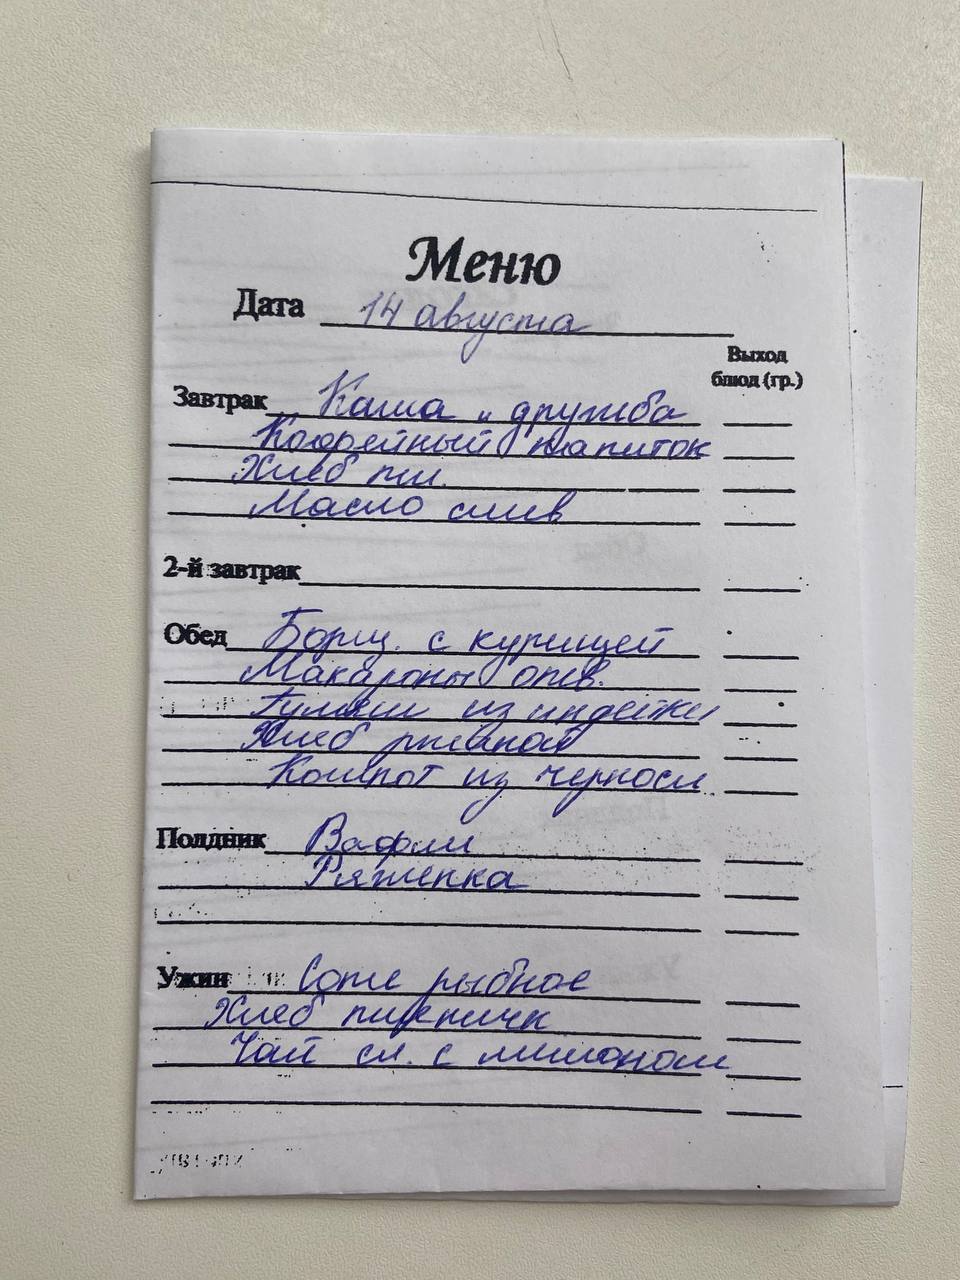 Меню
Дата 14 августа
Выход
блюд (гр.)
Завтрак Каша "дружба
Кофейный напиток
Хлеб пш.
Масло слив
2-й завтрак
Обед Борщ. с курицей
Макароны отв.
Гуляш из индейки
Хлеб ржаной
Компот из чернос
Полдник Вафли
Ряженка
Ужин Соте рыбное
Хлеб пшеничн
Чай сл. с лимоном